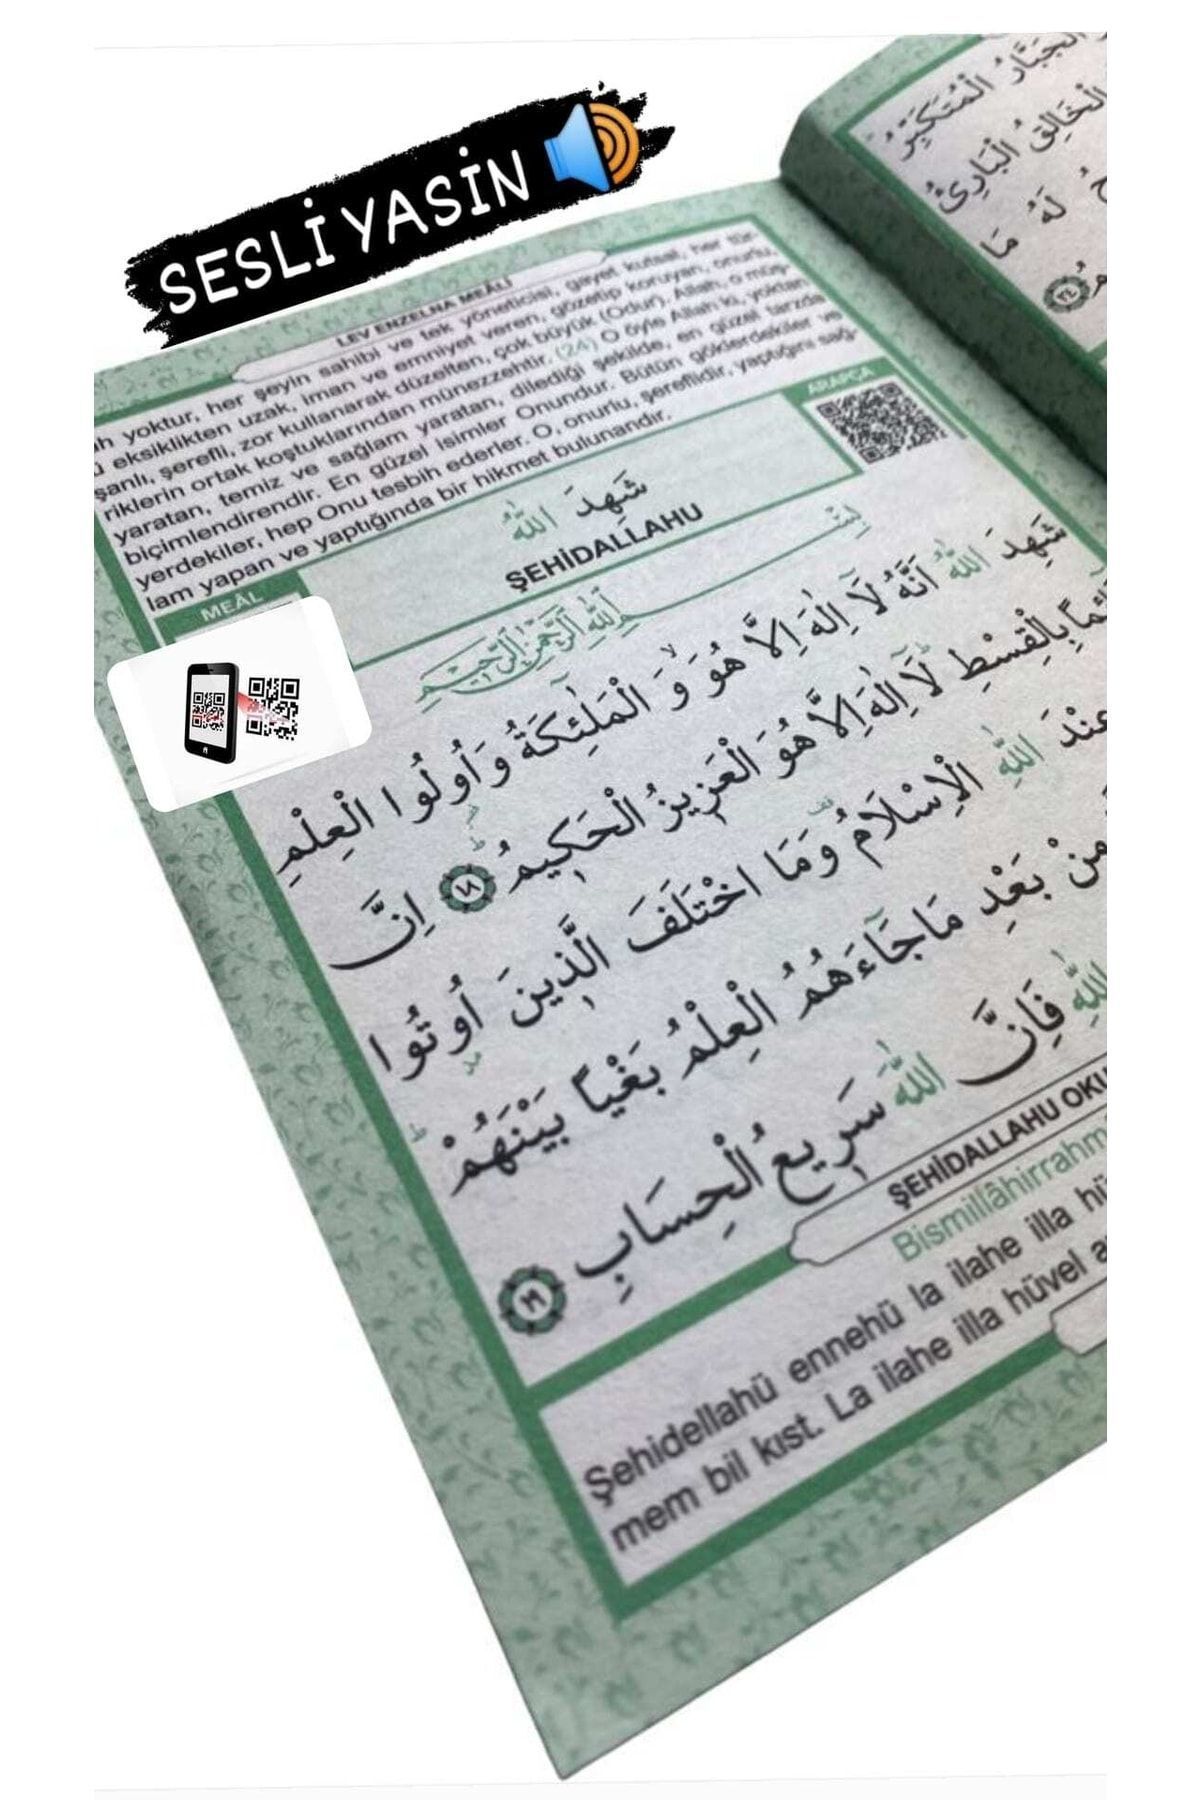 SESLİ YASİN
LEV ENZELNA MEÂLİ
yoktur, her şeyin sahibi ve tek yöneticisi, gayet kutsal, her tür
eksiklikten uzak, iman ve emniyet veren, gözetip koruyan, onurlu,
şanlı, şerefli, zor kullanarak düzelten, çok büyük (Odur). Allah, o müş-
riklerin ortak koştuklarından münezzehtir. (24) O öyle Allah ki, yoktan
yaratan, temiz ve sağlam yaratan, dilediği şekilde, en güzel tarzda
biçimlendirendir. En güzel isimler Onundur. Bütün göklerdekiler ve
yerdekiler, hep Onu tesbih ederler. O, onurlu, şereflidir, yaptığını sağ-
lam yapan ve yaptığında bir hikmet bulunandır.
ARAPÇA
شَهِدَ اللّٰهُ
ŞEHİDALLAHU
MEÂL
بِسْمِ اللّٰهِ الرَّحْمٰنِ الرَّحِيمِ
شَهِدَ اللّٰهُ اَنَّهُ لَا اِلٰهَ اِلَّا هُوَ وَ الْمَلٰٓئِكَةُ وَاُولُوا الْعِلْمِ
بِالْقِسْطِ لَا اِلٰهَ اِلَّا هُوَ الْعَزِيزُ الْحَكِيمُ ١٨ اِنَّ
عِنْدَ اللّٰهِ الْاِسْلَامُ وَمَا اخْتَلَفَ الَّذِينَ اُوتُوا
مِنْ بَعْدِ مَا جَٓاءَهُمُ الْعِلْمُ بَغْيًا بَيْنَهُمْ
اللّٰهِ فَاِنَّ اللّٰهَ سَرِيعُ الْحِسَابِ ١٩
ŞEHİDALLAHU
Bismillâhirrahm
Şehidellahü ennehü la ilahe illa
mem bil kıst. La ilahe illa hüvel
الْجَبَّارُ الْمُتَكَبِّرُ
الْخَالِقُ الْبَارِئُ
لَهُ مَا
٢٤